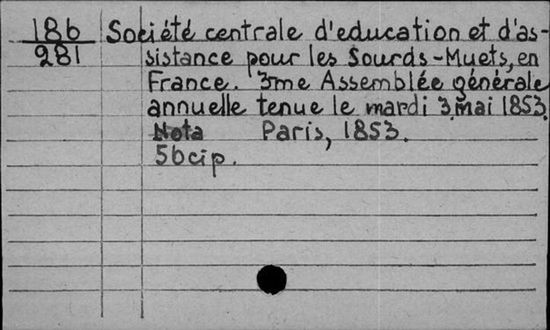 186 Société centrale d'education et d'as-
281 sistance pour les Sourds-Muets, en
France. 3me Assemblée générale
annuelle tenue le mardi 3 Mai 1853.
Nota Paris, 1853.
56cip.